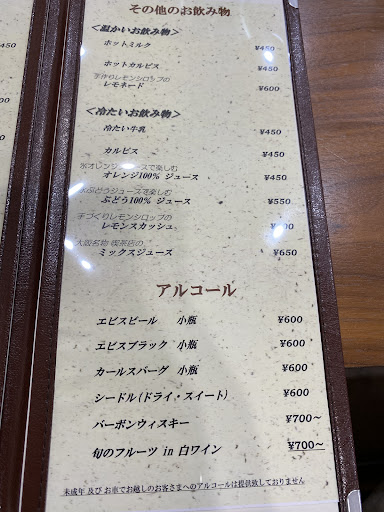 その他のお飲み物
＜温かいお飲み物＞
ホットミルク ¥450
ホットカルピス ¥450
手作りレモンシロップの
レモネード ¥600
＜冷たいお飲み物＞
冷たい牛乳 ¥450
カルピス ¥450
氷オレンジジュースで楽しむ
オレンジ100% ジュース ¥450
氷ぶどうジュースで楽しむ
ぶどう100% ジュース ¥550
手づくりレモンシロップの
レモンスカッシュ
大阪名物 喫茶店の
ミックスジュース ¥650
アルコール
エビスビール 小瓶 ¥600
エビスブラック 小瓶 ¥600
カールスバーグ 小瓶 ¥600
シードル(ドライ・スイート) ¥600
バーボンウィスキー ¥700～
旬のフルーツ in 白ワイン ¥700～
未成年 及び お車でお越しのお客さまへのアルコールは提供致しておりません